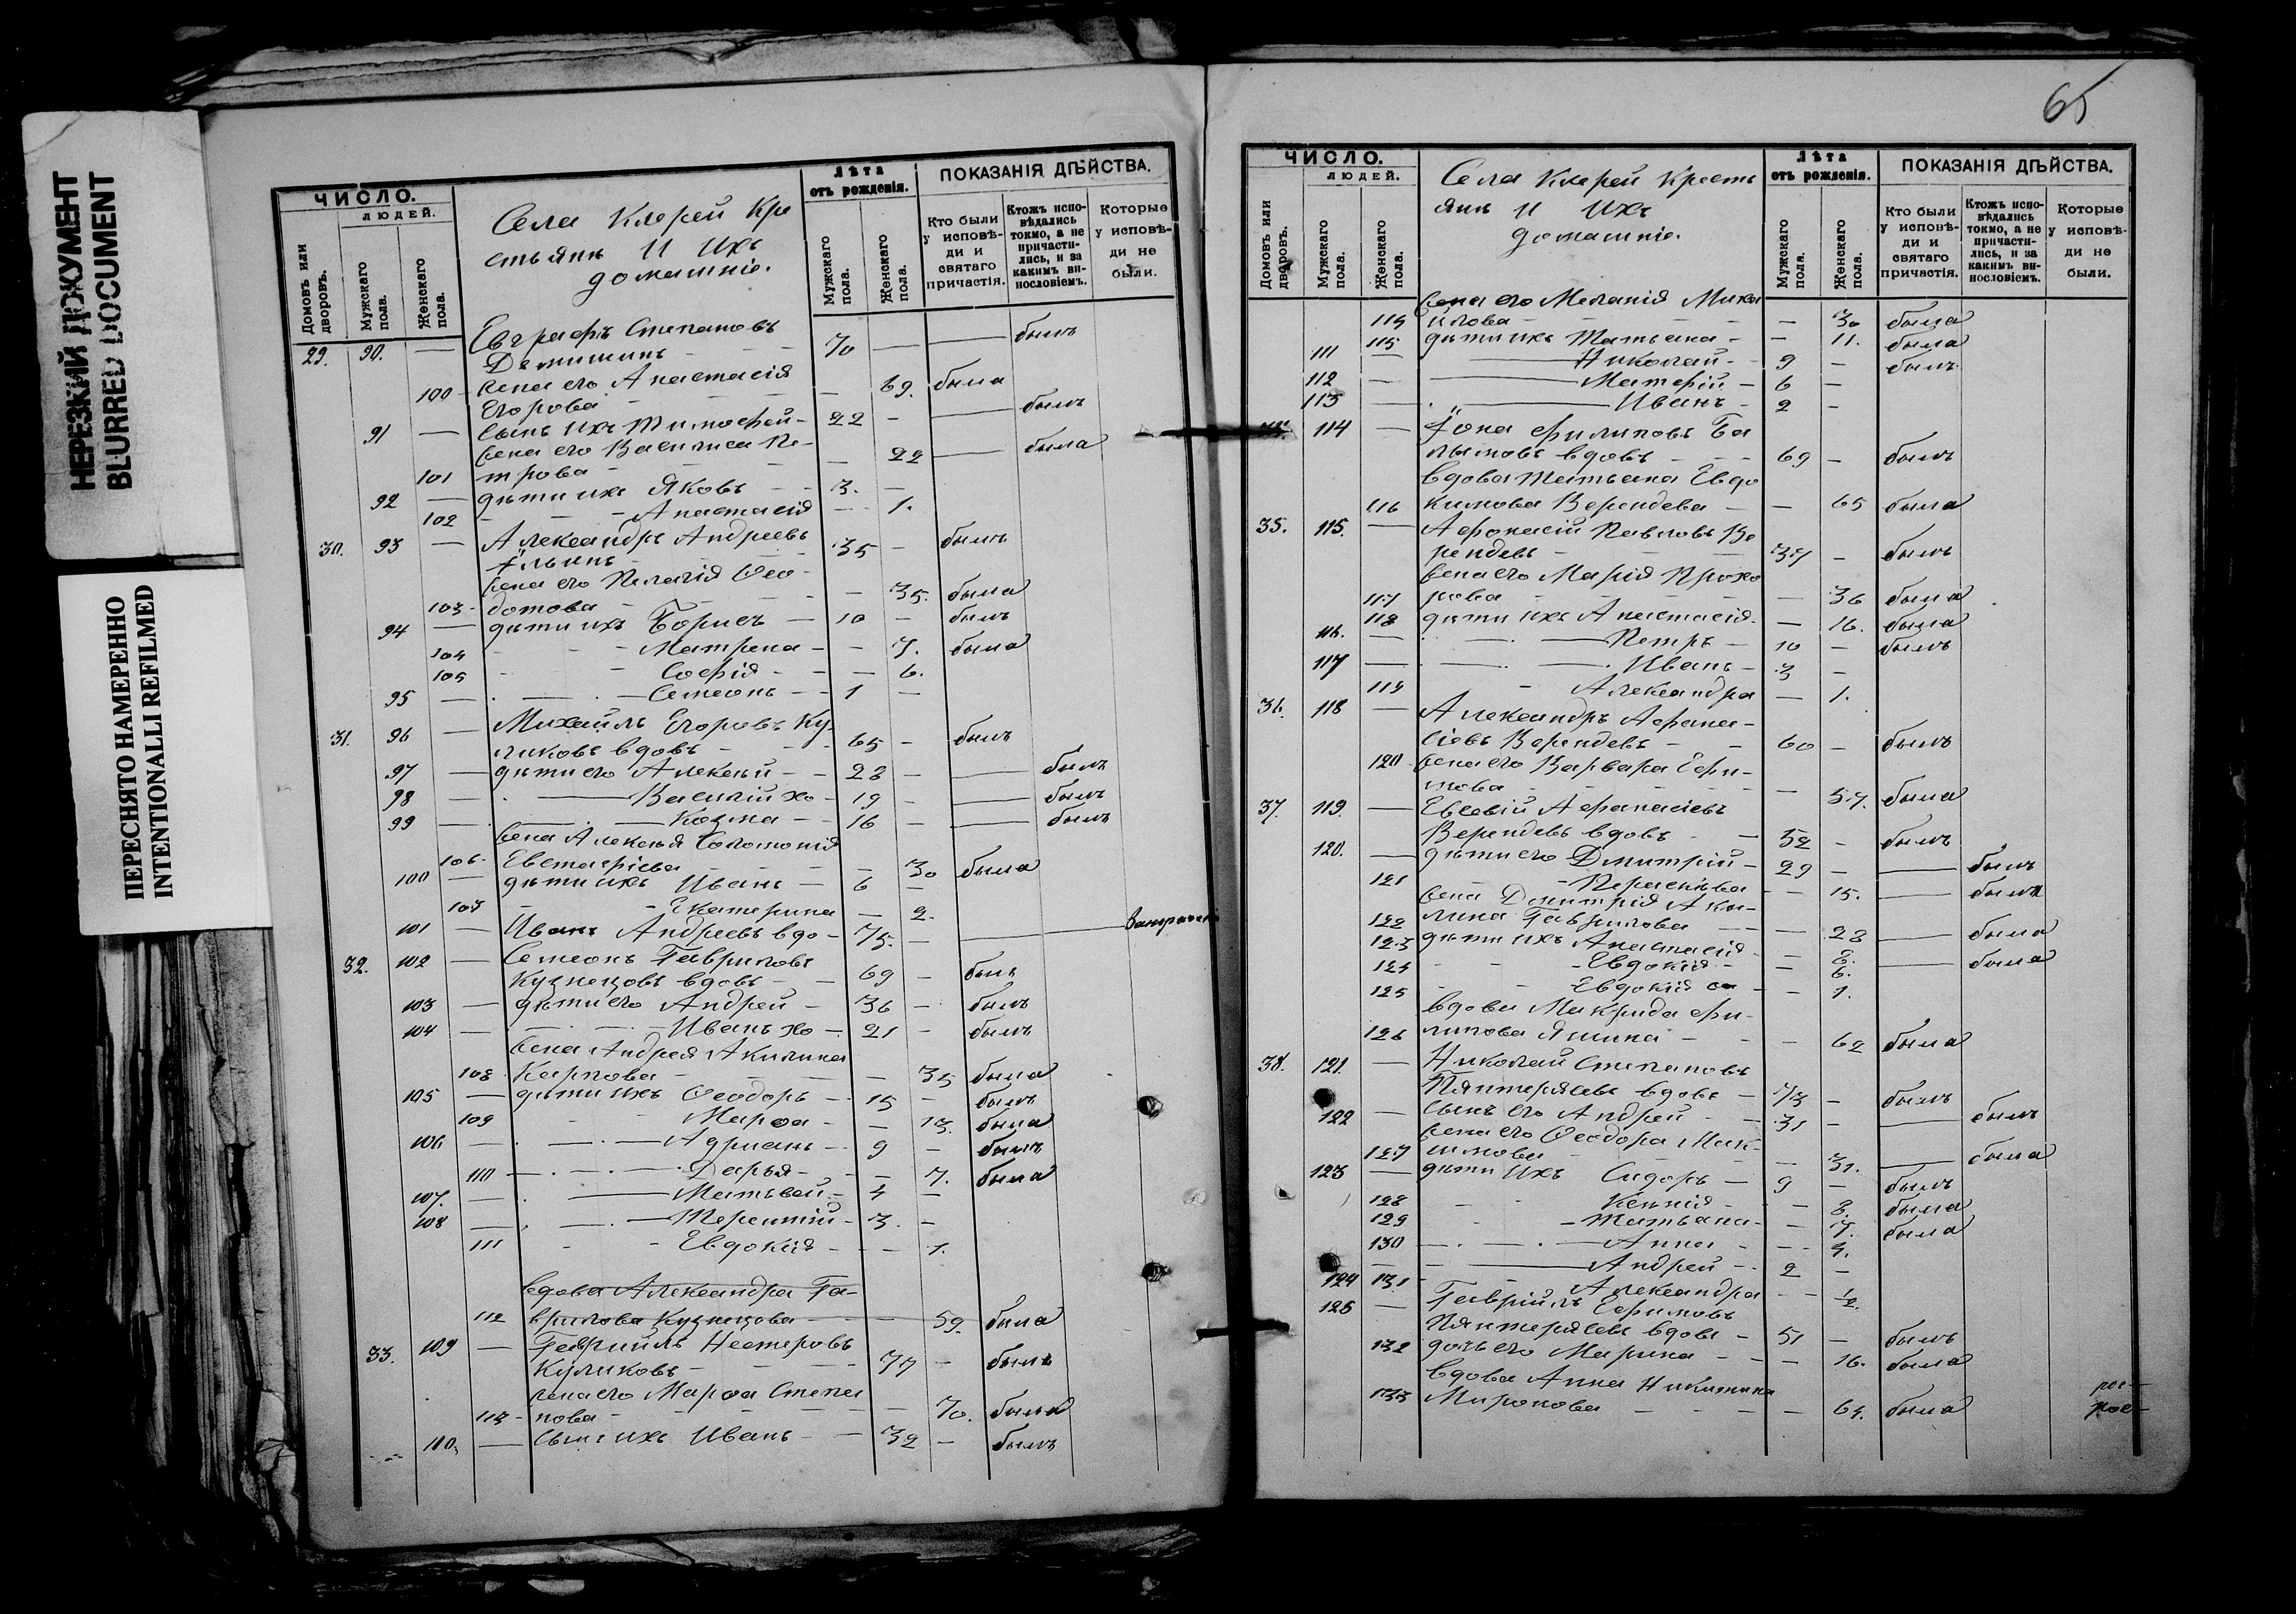 НЕРЕЗКИЙ ДОКУМЕНТ
BLURRED DOCUMENT
ПЕРЕСНЯТО НАМЕРЕННО
INTENTIONALLI REFILMED
ЧИСЛО.
ЛЮДЕЙ.
Домовъ или дворовъ.
Мужскаго пола.
Женскаго пола.
Села Клерей Кре
стьянъ И Ихъ
домашніе.
Лѣта
отъ рожденія.
Мужскаго пола.
Женскаго пола.
ПОКАЗАНІЯ ДѢЙСТВА.
Кто были у исповѣди и святаго причастія.
Ктожъ исповѣдались токмо, а не причастились, и за какимъ винословіемъ.
Которые у исповѣди не были.
29. 90. — Евграфъ Степановъ
70 — — былъ
100 жена его Анастасія
Егорова — 69. была
91 — сынъ ихъ Тимофей 22 — — былъ
жена его Василиса Пе-
101 трова — 22 — была
92 — дѣти ихъ Яковъ 3. —
102 Анастасія — 1.
30. 93 — Александръ Андреевъ
Ильинъ 35 — былъ
жена его Пелагія Ѳео-
103 дотова — 35. была
94 — дѣти ихъ Борисъ 10 — былъ
104 Матрена — 7. была
105 Софія — 6.
95 — Семеонъ 1 —
31. 96 — Михаилъ Егоровъ Ку-
ликовъ вдовъ 65 — былъ
97 — дѣти его Алексѣй 28 — — былъ
98 — Василій хо 19 — — былъ
99 — Козма 16 — — былъ
жена Алексѣя Соломонія
106 Евстафіева — 30 была
100 — дѣти ихъ Иванъ 6 —
107 Екатерина — 2.
101 — Иванъ Андреевъ вдо- 75. —
32. 102 — Семеонъ Гавриловъ
Кузнецовъ вдовъ 69 — былъ
103 — дѣти его Андрей 36 — былъ
104 — Иванъ хо 21 — былъ
жена Андрея Акилина
108 Карпова — 35 была
105 — дѣти ихъ Ѳеодоръ 15 — былъ
109 Марѳа — 13. была
106 — Адрианъ 9 — былъ
110 — Дарья — 7. была
107. — Матвей 4 —
108 — Терентій 3. —
111 Евдокія — 1.
вдова Александра Га-
112 врилова Кузнецова — 59. была
33. 109 — Гавриилъ Нестеровъ
Куликовъ 77 — былъ
жена его Марѳа Степа
113 нова — 70. была
110. — сынъ ихъ Иванъ 32 — былъ
65
ЧИСЛО.
ЛЮДЕЙ.
Домовъ или дворовъ.
Мужскаго пола.
Женскаго пола.
Села Клерей Кресть
янъ И Ихъ
домашніе.
Лѣта
отъ рожденія.
Мужскаго пола.
Женскаго пола.
ПОКАЗАНІЯ ДѢЙСТВА.
Кто были у исповѣди и святаго причастія.
Ктожъ исповѣдались токмо, а не причастились, и за какимъ винословіемъ.
Которые у исповѣди не были.
жена его Меланія Миха
114 илова — 30 была
115 дѣти ихъ Татьяна — 11. была
111 — Николай 9 — былъ
112 — 6 —
113 — Иванъ 2 —
114 — Іона Филиповъ
вдовъ 69 — былъ
вдова Татьяна Евдо
116 кимова Верендева — 65 была
35. 115. — Афонасій Павловъ Ве
рендевъ 37 — былъ
жена его Марія Прохо
117 рова — 36 была
118 дѣти ихъ Анастасія — 16. была
116. — Петръ 10 — былъ
117 — Иванъ 3 —
119 Александра — 1.
36. 118 — Александръ Афана-
сіевъ Верендевъ 60 — былъ
120 жена его Варвара Ефи-
мова — 57. была
37. 119. — Евсевій Афанасіевъ
Верендевъ вдовъ 52 — былъ
120. — дѣти его Димитрій 29 — — былъ
121 Параскева — 15. — была
жена Димитрія Аки-
122 лина Гаврилова — 28 — была
123 дѣти ихъ Анастасія — 8. — была
124 Евдокія — 6.
125 Евдокія — 1.
вдова Макрида Фи-
126 липова Яшина — 62 была
38. 121. — Николай Степановъ
Пянтерясевъ вдовъ 73 — былъ
122 — сынъ его Андрей 31 — — былъ
жена его Ѳеодора Мак-
127 симова — 31. — была
123 — дѣти ихъ Сидоръ 9 — былъ
128 Ксенія — 8. была
129 Татьяна — 7. была
130 Анна — 4.
124 — Андрей 2 —
131 Александра — 1/2.
125 — Гавріилъ Ефимовъ
Пянтерясевъ вдовъ 51 — былъ
132 дочь его Марина — 16. была
вдова Анна Никитина
133 Миронова — 64. была